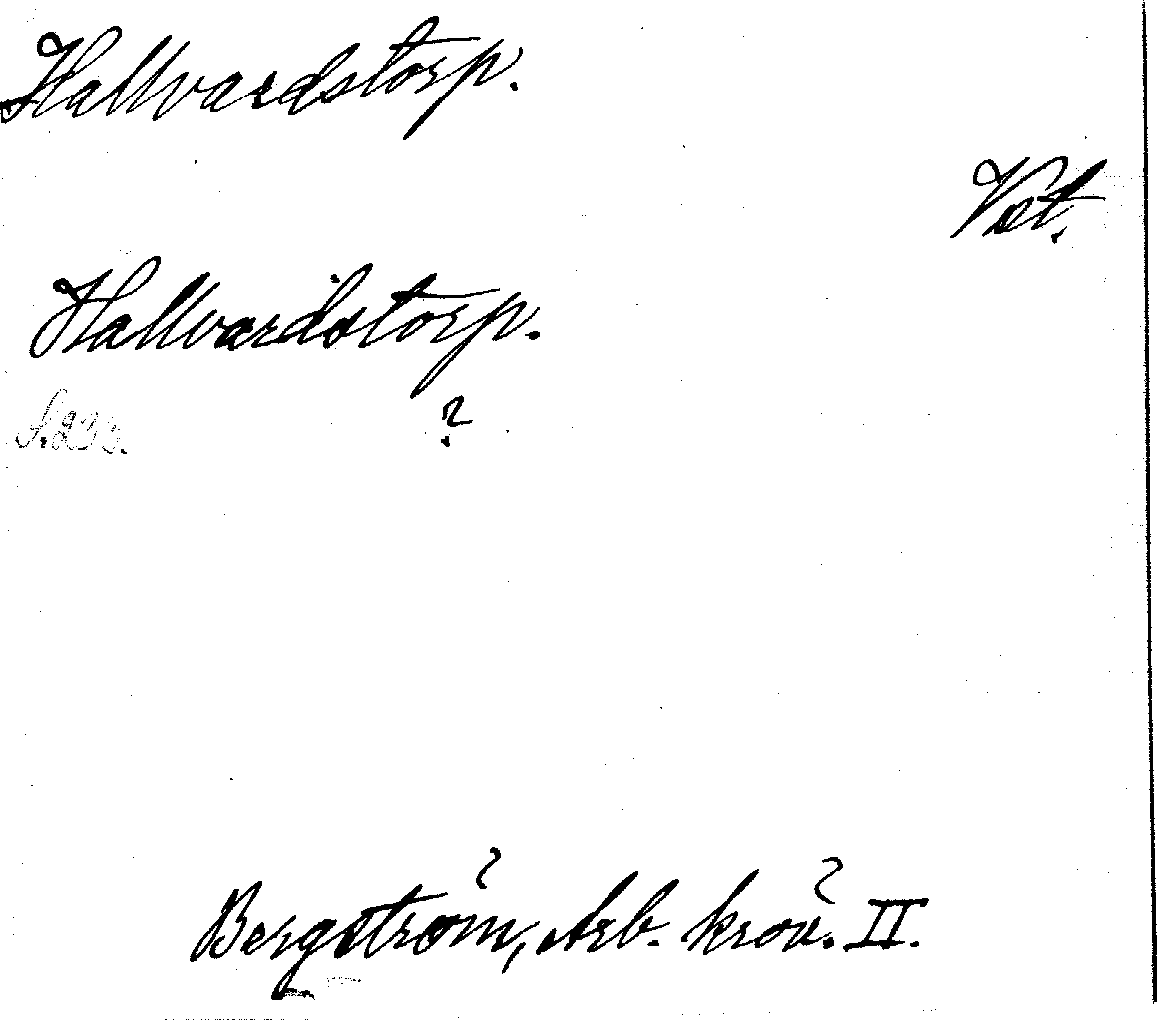 Hallvardstorp.
Vst.
Hallvardstorp.
S. 233.
?
Bergström, Arb. kröv. II.